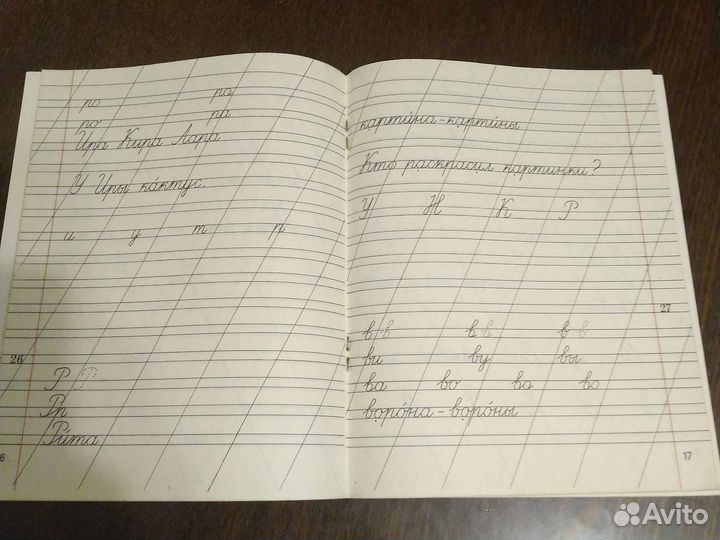 ро ра
ро ра
Ира Кира Лара
У Иры ка́ктус.
и у т р
26
Р Р
Рр
Ри́та
6
карти́на - карти́ны
Кто раскрасил картинки?
У Н К Р
27
в в в в в в в
ви ву вы
ва во ва во
воро́на - воро́ны
17
Avito